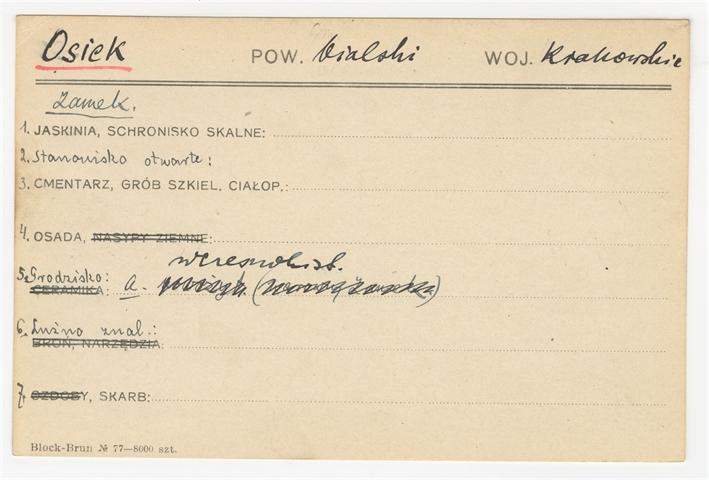 Osiek POW. bialski WOJ. Krakowskie
Zamek.
1. JASKINIA, SCHRONISKO SKALNE:
2. Stanowisko otwarte:
3. CMENTARZ, GRÓB SZKIEL. CIAŁOP.:
4. OSADA, NASYPY ZIEMNE:
wczesnohist.
5. Grodzisko: a.
CERAMIKA:
6. Luźno znal.:
BROŃ, NARZĘDZIA:
7. OZDOBY, SKARB:
Block-Brun № 77—8000 szt.